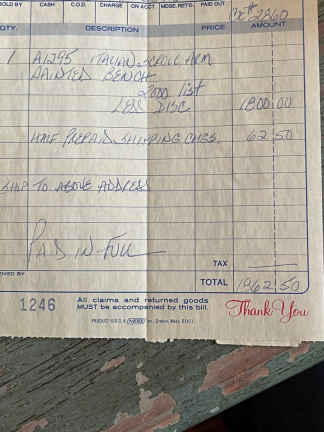 SOLD BY CASH C.O.D. CHARGE ON ACCT. MDSE. RETD. PAID OUT
QTY. DESCRIPTION PRICE AMOUNT
1 A1295 ITALIAN SCROLL ARM
PAINTED BENCH
2000 list
LESS DISC 1800.00
HALF PREPAID SHIPPING CHGS 62 50
SHIP TO ABOVE ADDRESS
PAID IN FULL
TAX
TOTAL 1962 50
1246
All claims and returned goods
MUST be accompanied by this bill.
Thank You